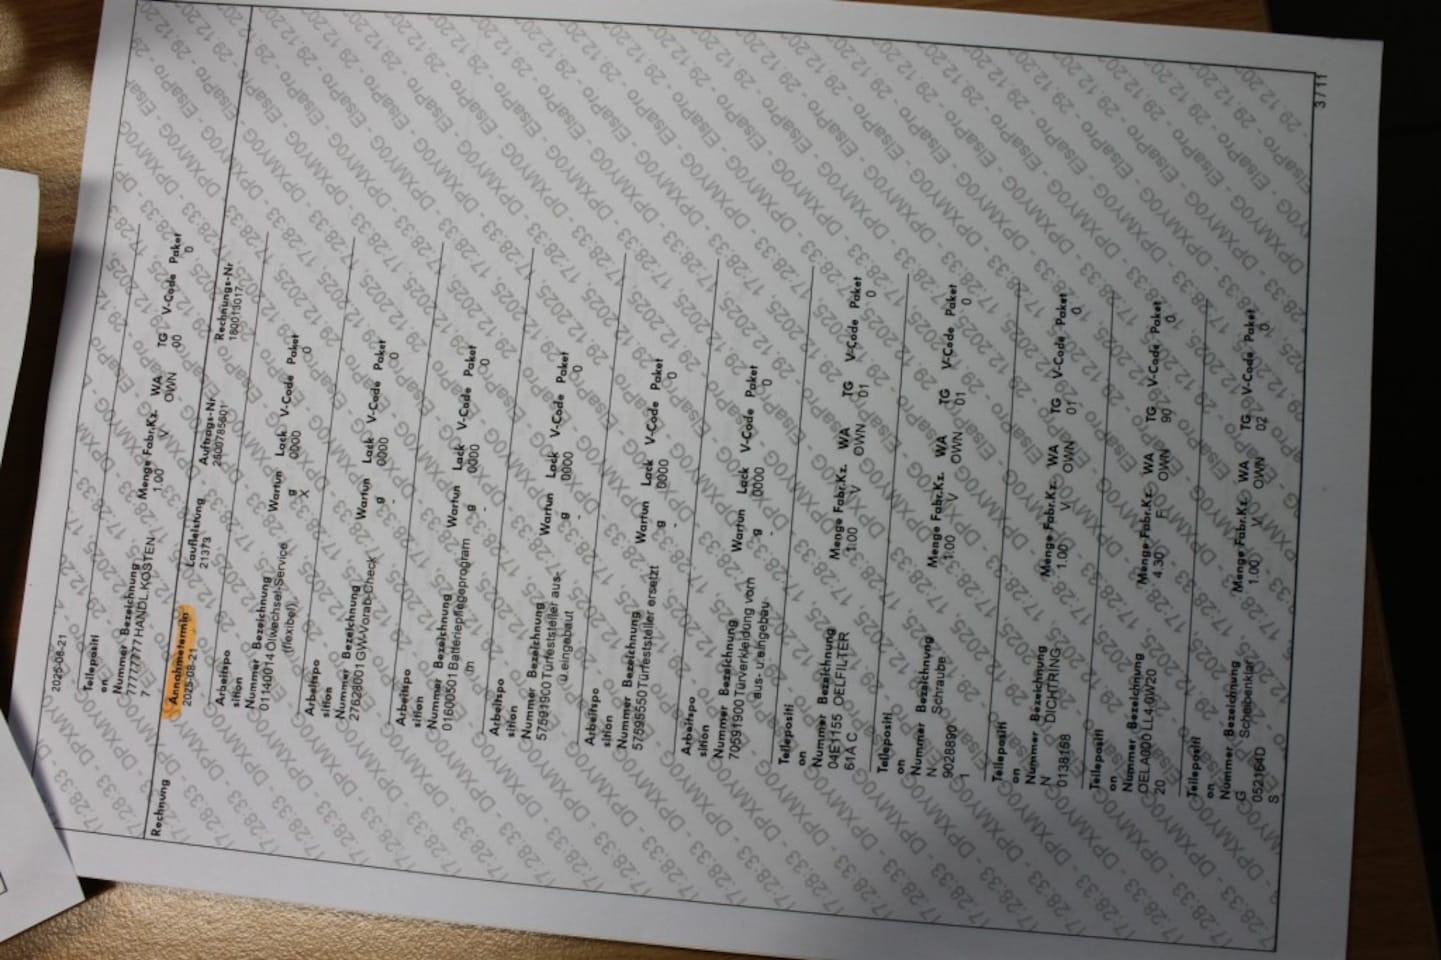 2025-08-21
Teilepositi
on
Nummer Bezeichnung Menge Fabr.Kz. WA TG V-Code Paket
77777777 HANDL.KOSTEN 1.00 V OWN 00 0
7
Rechnung Annahmetermin Laufleistung Auftrags-Nr. Rechnungs-Nr
2025-08-21 21373
Arbeitspo
sition
Nummer Bezeichnung Wartun Lack V-Code Paket
01140014 Ölwechsel-Service g 0000 0
(flexibel) X
Arbeitspo
sition
Nummer Bezeichnung Wartun Lack V-Code Paket
27628001 GW-Vorab-Check g 0000 0
-
Arbeitspo
sition
Nummer Bezeichnung Wartun Lack V-Code Paket
01600501 Batteriepflegeprogram g 0000 0
m -
Arbeitspo
sition
Nummer Bezeichnung Wartun Lack V-Code Paket
57591900 Türfeststeller aus- g 0000 0
u.eingebaut -
Arbeitspo
sition
Nummer Bezeichnung Wartun Lack V-Code Paket
57595550 Türfeststeller ersetzt g 0000 0
-
Arbeitspo
sition
Nummer Bezeichnung Wartun Lack V-Code Paket
70591900 Türverkleidung vorn g 0000 0
aus- u.eingebau -
Teilepositi
on
Nummer Bezeichnung Menge Fabr.Kz. WA TG V-Code Paket
04E1155 OELFILTER 1.00 V OWN 01 0
61A C
Teilepositi
on
Nummer Bezeichnung Menge Fabr.Kz. WA TG V-Code Paket
N Schraube 1.00 V OWN 01 0
9028890
1
Teilepositi
on
Nummer Bezeichnung Menge Fabr.Kz. WA TG V-Code Paket
N DICHTRING 1.00 V OWN 01 0
0138158
Teilepositi
on
Nummer Bezeichnung Menge Fabr.Kz. WA TG V-Code Paket
OELA000 LL4 0W20 4.30 F OWN 90 0
20
Teilepositi
on
Nummer Bezeichnung Menge Fabr.Kz. WA TG V-Code Paket
G 1.00 V OWN 02 0
052164D
S
3 / 11
29.12.2025, 17:28:33 - DPXMY0G - ElsaPro